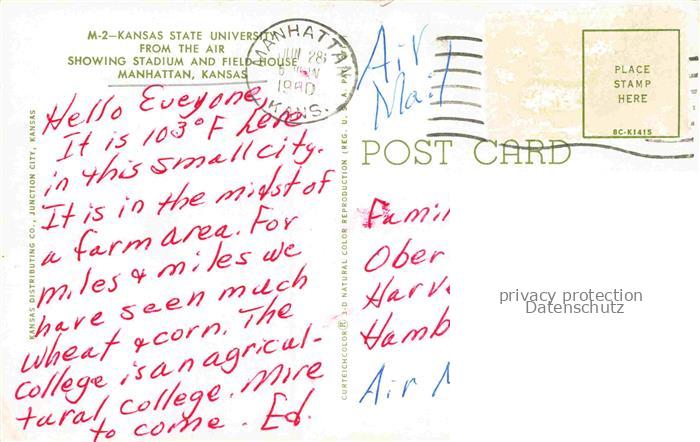 M-2—KANSAS STATE UNIVERSITY
FROM THE AIR
SHOWING STADIUM AND FIELD HOUSE
MANHATTAN, KANSAS
MANHATTAN
JUN 28
1980
KANS.
Air
Mail
PLACE
STAMP
HERE
8C-K1415
POST CARD
Hello Eveyone
It is 103°F here
in this small city.
It is in the midst of
a farm area. For
miles & miles we
have seen much
wheat & corn. The
college is an agricul-
tural college. More
to come. Ed.
KANSAS DISTRIBUTING CO., JUNCTION CITY, KANSAS
CURTEICHCOLOR ® 3-D NATURAL COLOR REPRODUCTION (REG. U.S.A. PAT.
Famil
Ober
Harv
Hamb
Air M
privacy protection
Datenschutz